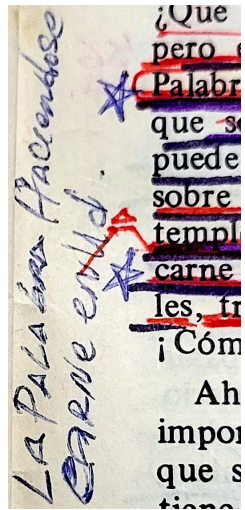 LA PALABRA HACIENDOSE
CARNE en Ud
¿Que
pero e
Palabr
que se
puede
sobre
templ
carne
les, tr
¡Cóm
Ah
impor
que s
tiene